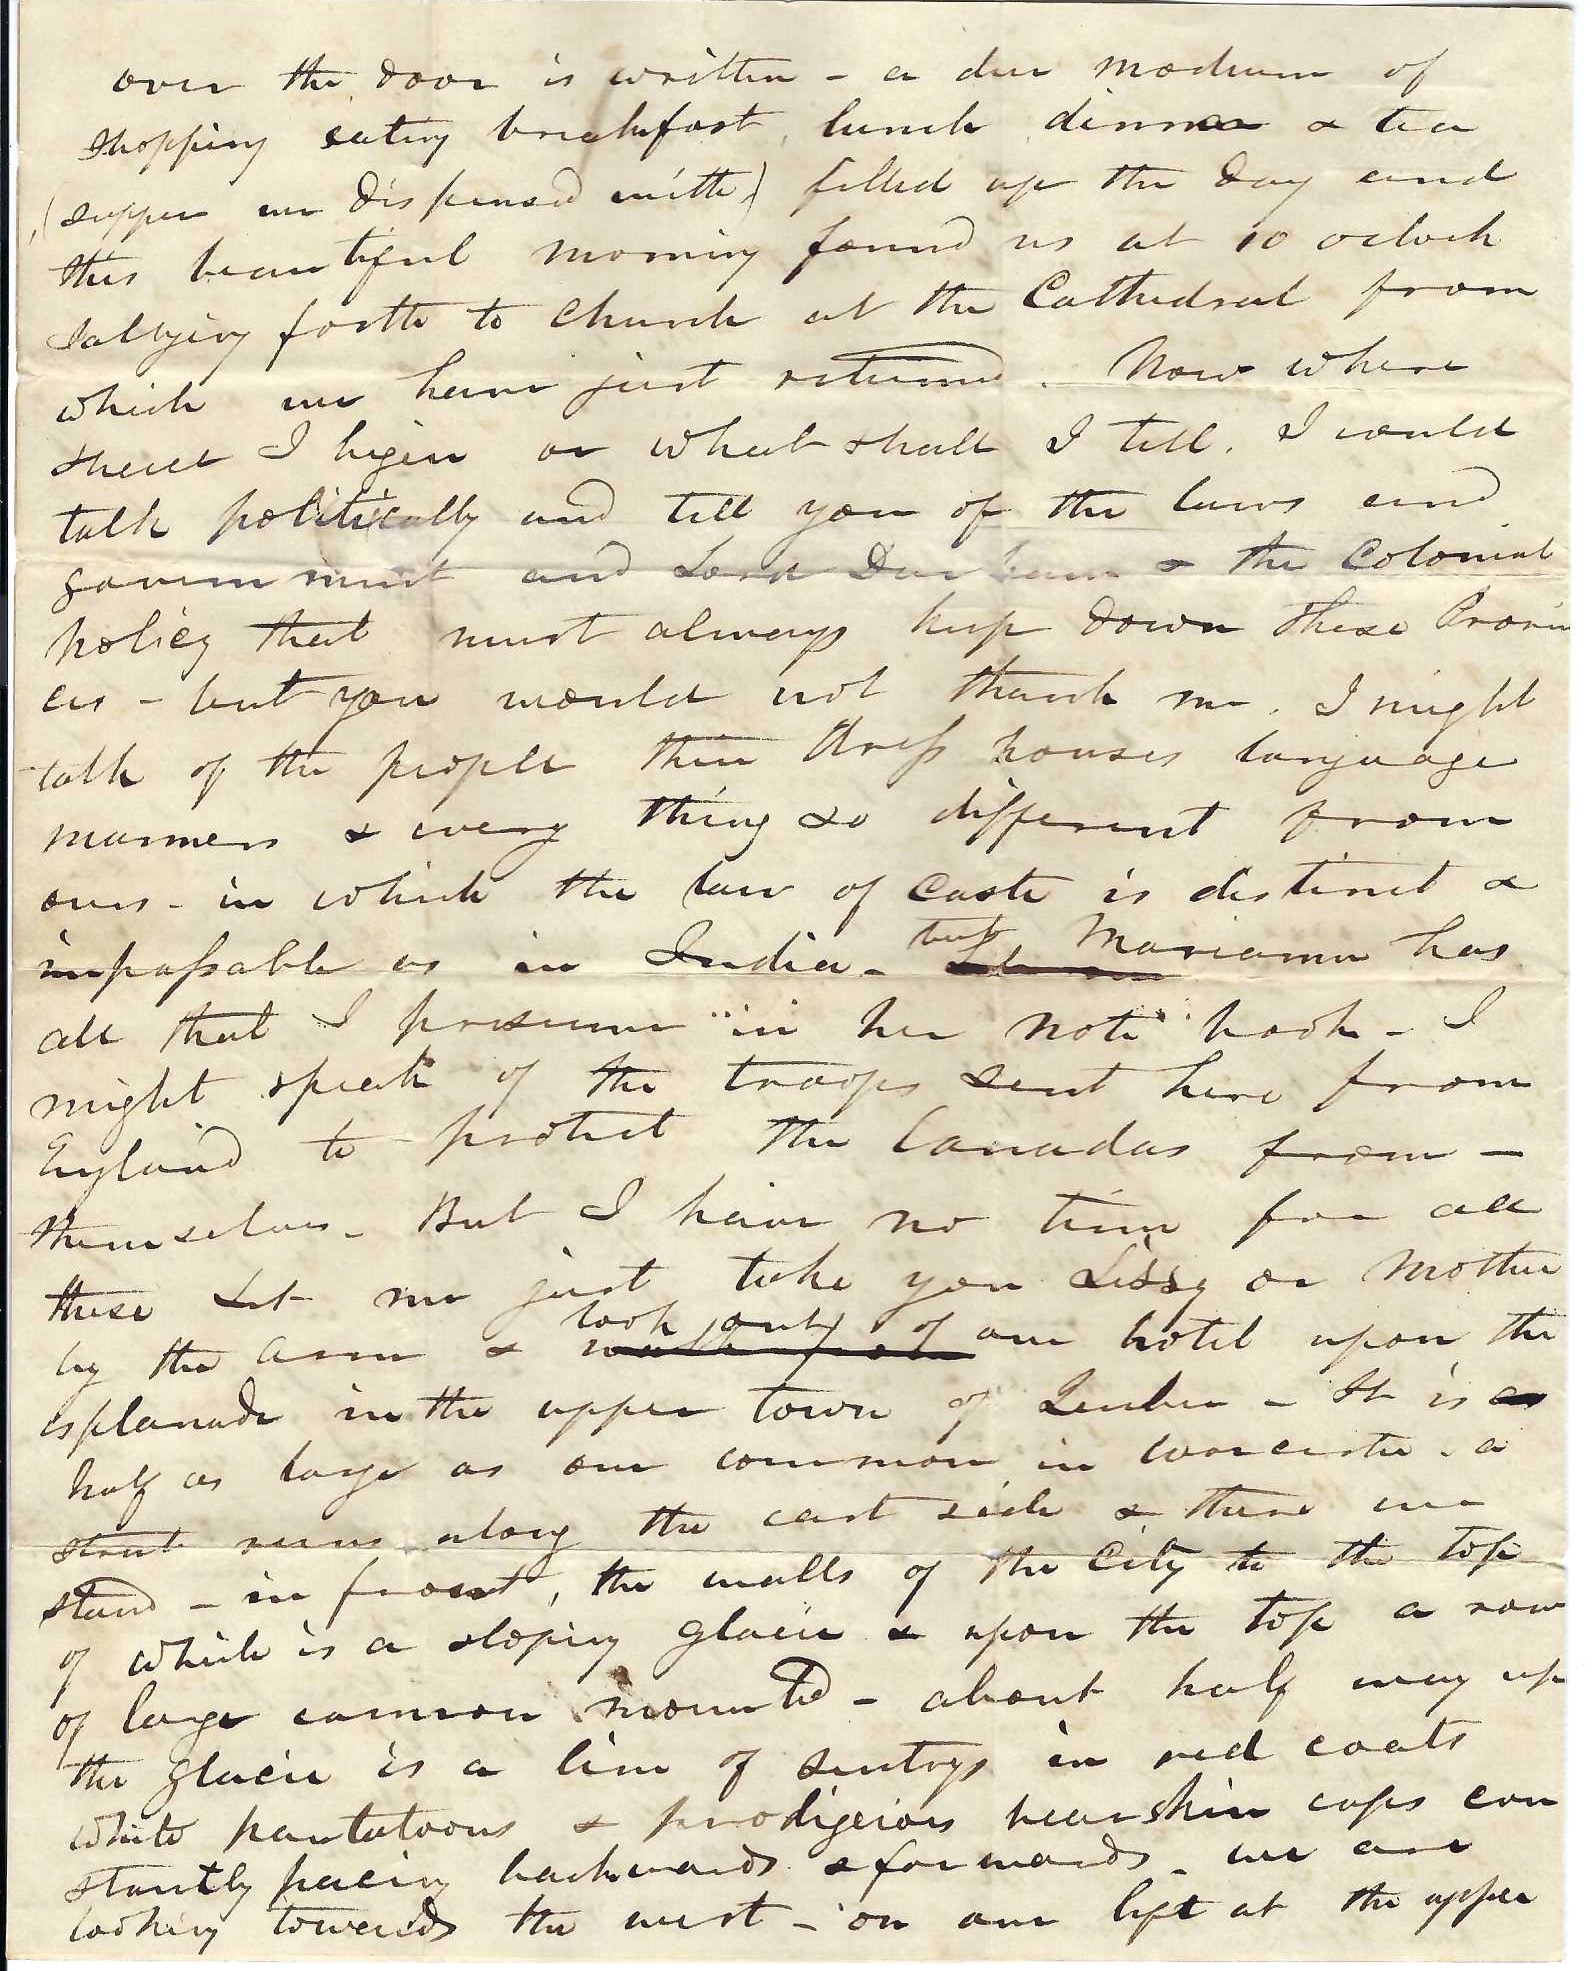 over the door is written - a due medium of
shopping eating breakfast, lunch dinner & tea
(supper we dispensed with) filled up the day and
this beautiful morning found us at 10 oclock
sallying forth to Church at the Cathedral from
which we have just returned. Now where
shall I begin or what shall I tell. I would
talk politically and tell you of the laws and
government and Lord Durham & the Colonial
policy that must always keep down these Provin
ces - but you would not thank me. I might
talk of the people their dress houses language
manners & every thing so different from
ours - in which the law of caste is distinct &
impassable as in India - but Marianne has
all that I presume "in her note" book - I
might speak of the troops sent here from
England to protect the Canadas from -
themselves - But I have no time for all
these Let me just take you Lissy or Mother
by the arm & look out of our hotel upon the
esplanade in the upper town of Quebec - It is
half as large as our common in Worcester - a
street runs along the east side & there we
stand - in front, the walls of the City to the top
of which is a sloping glacie & upon the top a row
of large cannon mounted - about half way up
the glacie is a line of sentrys in red coats
white pantatoons & prodigeious bearskin caps con
stantly pacing backwards & forwards - we are
looking towards the west - on our left at the upper